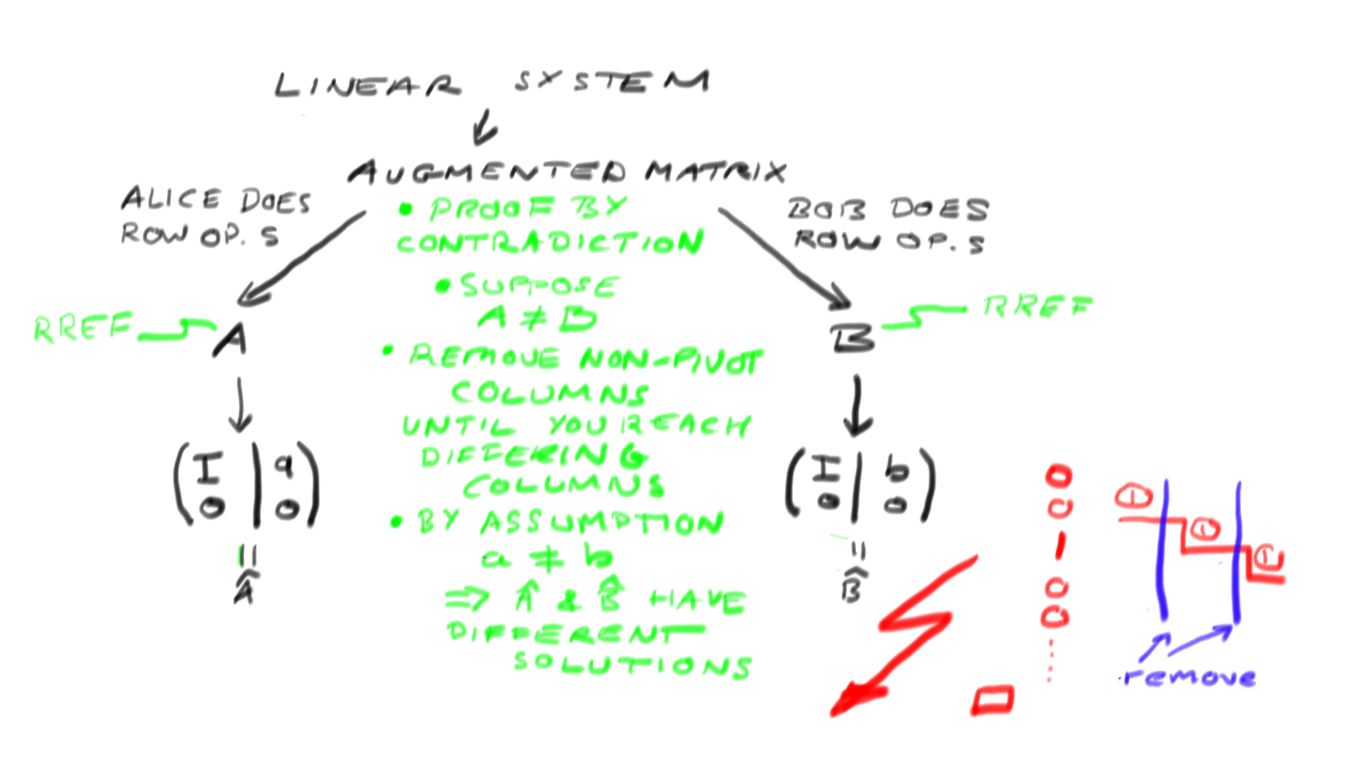 LINEAR SYSTEM
AUGMENTED MATRIX
ALICE DOES
ROW OP.S
BOB DOES
ROW OP.S
• PROOF BY
CONTRADICTION
• SUPPOSE
A ≠ B
RREF
A
B
RREF
• REMOVE NON-PIVOT
COLUMNS
UNTIL YOU REACH
DIFFERING
COLUMNS
• BY ASSUMPTION
a ≠ b
⇒ Â & B̂ HAVE
DIFFERENT
SOLUTIONS
( I | a )
( 0 | 0 )
=
Â
( I | b )
( 0 | 0 )
=
B̂
0
0
1
0
0
⋮
1
1
1
remove